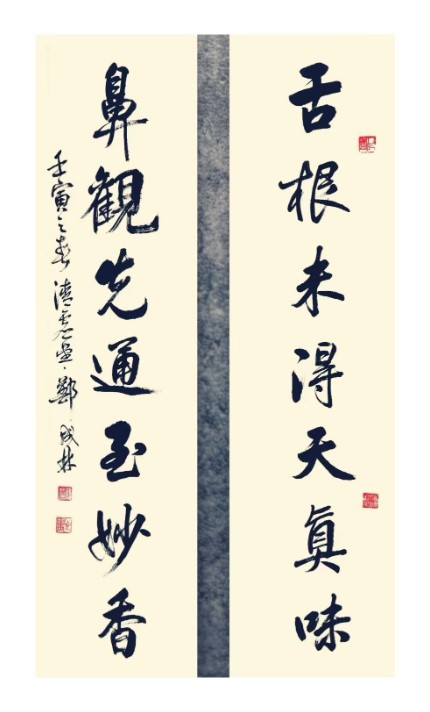 舌根未得天真味
鼻觀先通至妙香
壬寅之春 清虚堂 鄭成林